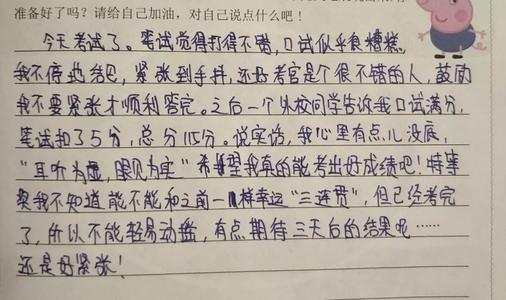 准备好了吗？请给自己加油，对自己说点什么吧！
今天考试了。笔试觉得打得不错，口试似乎很糟糕。
我不停地结巴，紧张到手抖，还好考官是个很不错的人，鼓励
我不要紧张才顺利答完。之后一个外校同学告诉我口试满分，
笔试扣了5分，总分115分。说实话，我心里有点儿没底，
“耳听为虚，眼见为实”希望我真的能考出好成绩吧！特等
奖我不知道能不能和之前一样幸运“三连贯”，但已经考完
了，所以不能轻易动摇，有点期待三天后的结果呢……
还是好紧张！